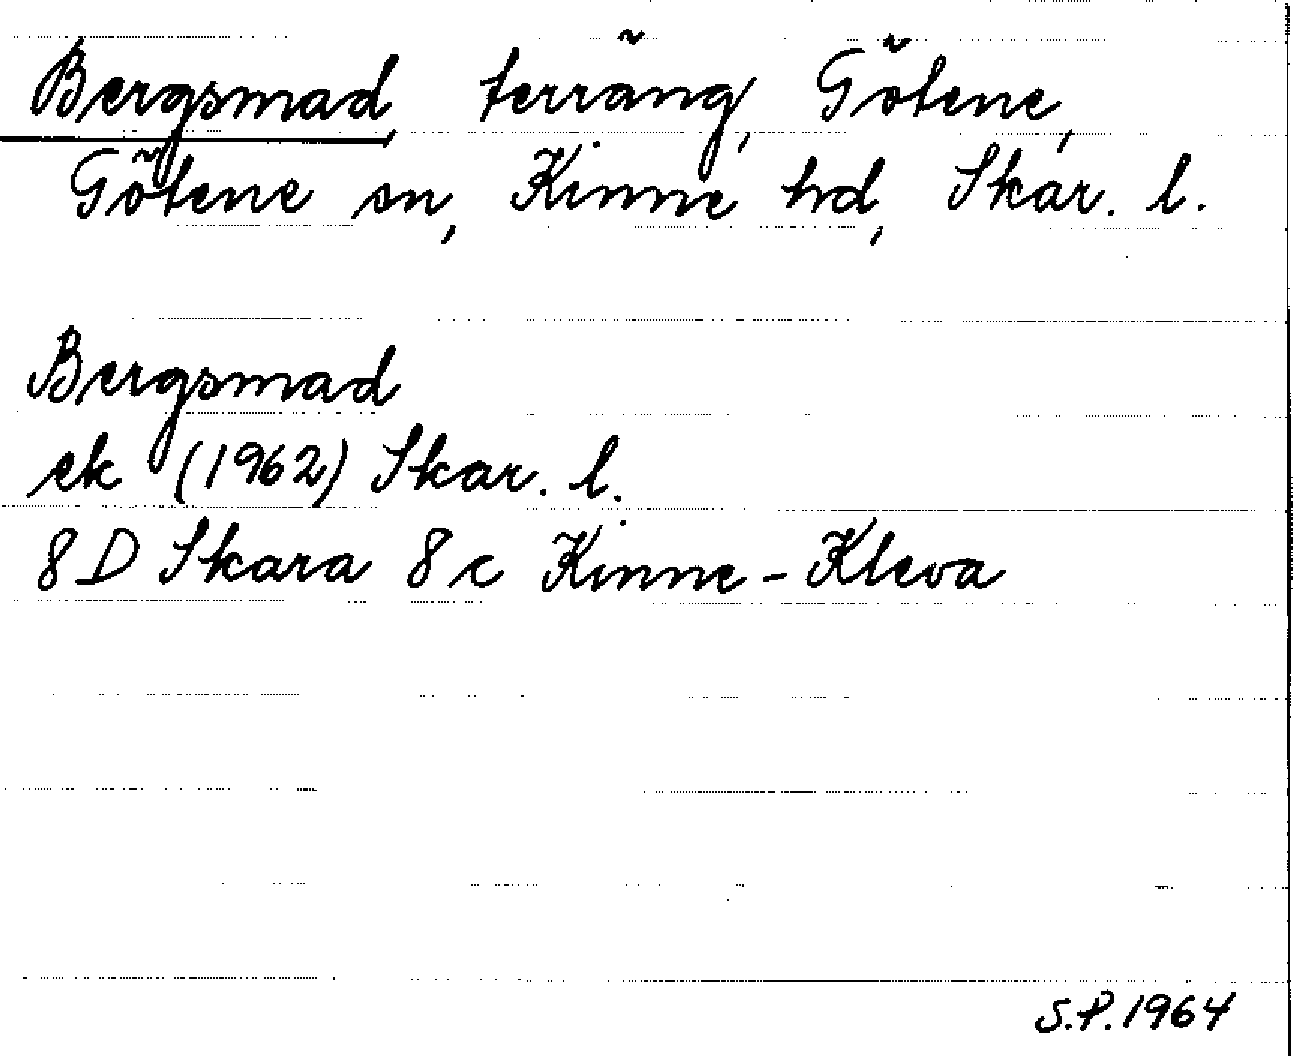 Bergsmad, terräng, Götene,
Götene sn, Kinne hd, Skar. l.
Bergsmad
ek (1962) Skar. l.
8D Skara 8c Kinne-Kleva
S.P. 1964